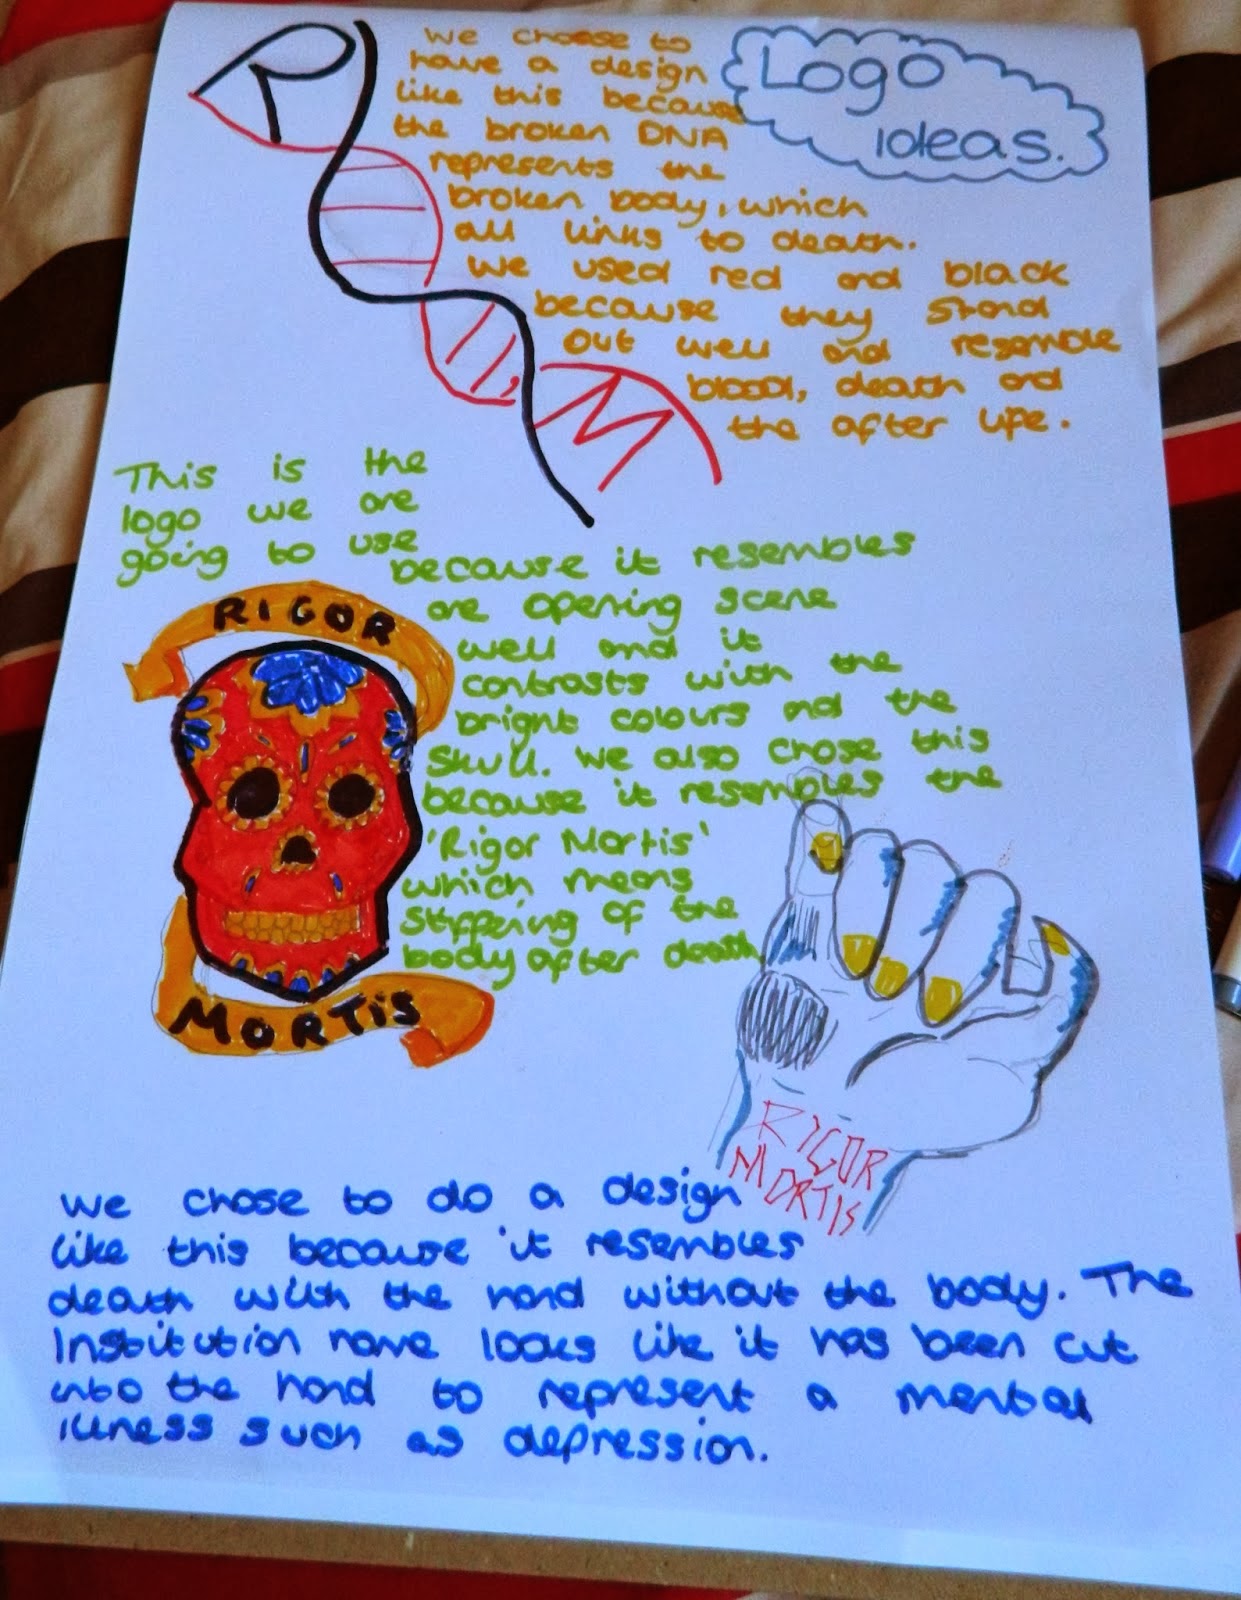 Logo
ideas.
R
M
We choose to
have a design
like this because
the broken DNA
represents the
broken body, which
all links to death.
We used red and black
because they stand
out well and resemble
blood, death and
the after life.
This is the
logo we are
going to use
because it resembles
are opening scene
well and it
contrasts with the
bright colours and the
skull. We also chose this
because it resembles the
'Rigor Mortis'
which means
stiffering of the
body after death
RIGOR
MORTIS
RIGOR
MORTIS
We chose to do a design
like this because it resembles
death with the hand without the body. The
Institution name looks like it has been cut
into the hand to represent a mental
illness such as depression.